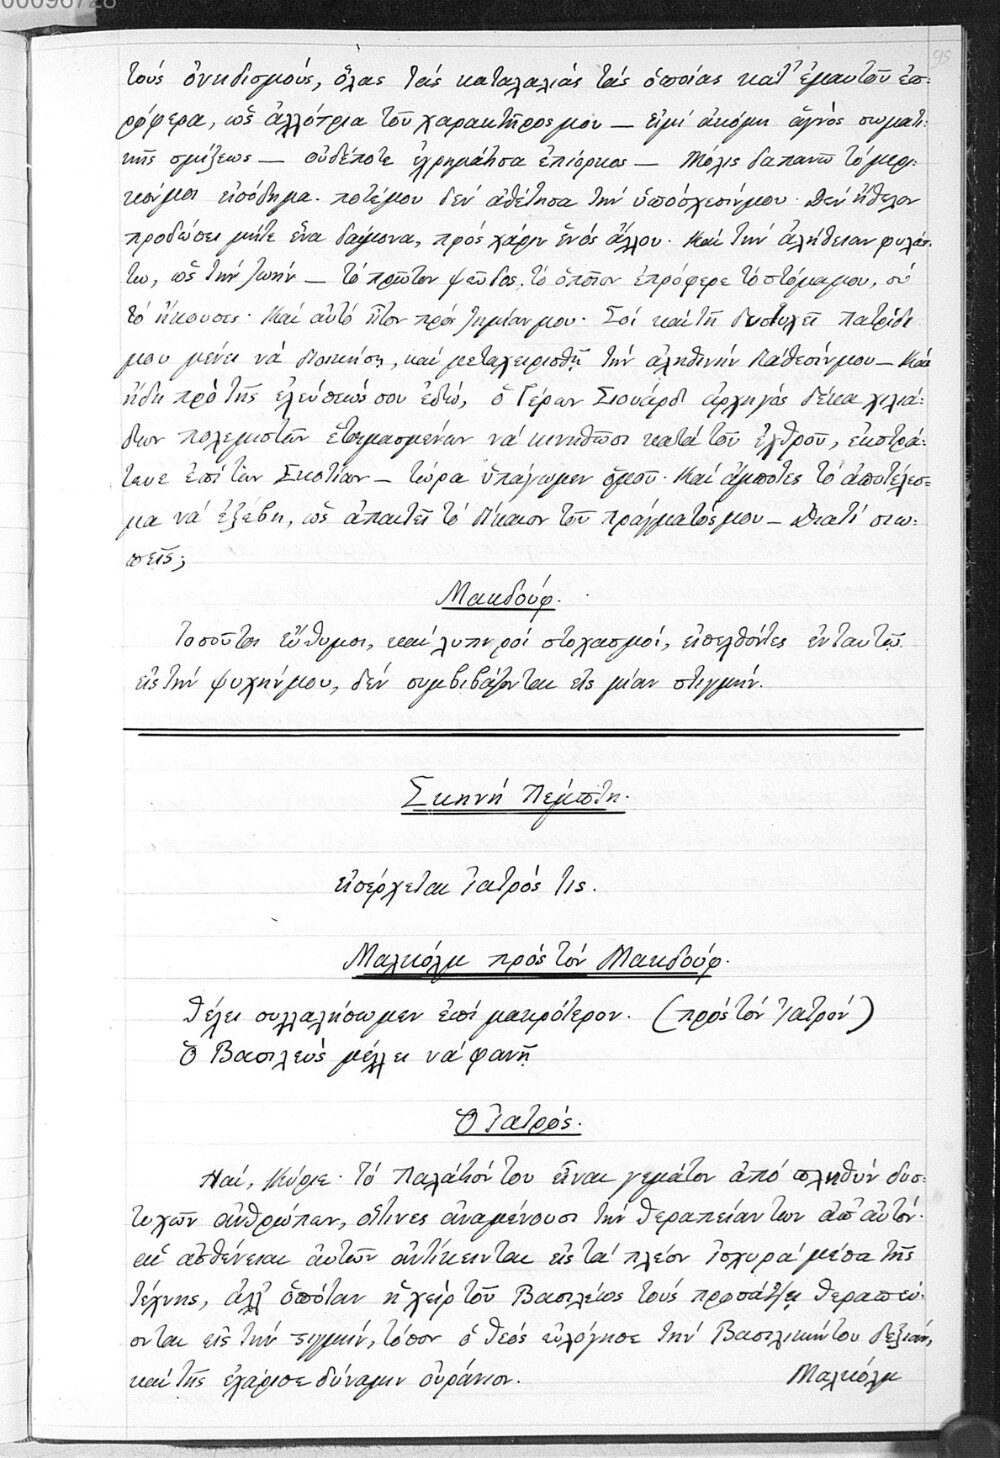 00096728
95
τοὺς ὀνειδισμούς, ὅλας τὰς καταλαλιὰς τὰς ὁποίας κατ' ἐμαυτοῦ ἐπ-
ρόφερα, ὡς ἀλλότρια τοῦ χαρακτῆρος μου — εἰμὶ ἀκόμη ἁγνὸς σωματι-
κῆς σμίξεως — οὐδέποτε ἐχρημάτησα ἐπίορκος — Μόλις δαπανῶ τὸ μερι-
κόν μου εἰσόδημα. ποτέ μου δὲν ἀθέτησα τὴν ὑπόσχεσίν μου. Δὲν ἤθελον
προδώσει μήτε ἕνα δαίμονα, πρὸς χάριν ἑνὸς ἄλλου. Καὶ τὴν ἀλήθειαν φυλάτ-
τω, ὡς τὴν ζωήν — τὸ πρῶτον ψεῦδος, τὸ ὁποῖον ἐπρόφερε τὸ στόμα μου, σὺ
τὸ ἤκουσες. Καὶ αὐτὸ ἦτον πρὸς ζημίαν μου. Σοὶ καὶ τῇ δυστυχεῖ πατρίδι
μου μένει νὰ διοικήσῃ, καὶ μεταχειρισθῇ τὴν ἀληθινὴν διάθεσίν μου — Καὶ
ἤδη πρὸ τῆς ἐλεύσεώς σου ἐδώ, ὁ Γέρων Σιουάρδ ἀρχηγὸς δέκα χιλιά-
δων πολεμιστῶν ἑτοιμασμένων νὰ κινηθῶσι κατὰ τοῦ ἐχθροῦ, ἐκστρά-
τευε ἐπὶ τὴν Σκοτίαν — τώρα ὑπάγωμεν ὁμοῦ. Καὶ ἄμποτες τὸ ἀποτέλεσ-
μα νὰ ἐξέβῃ, ὡς ἀπαιτεῖ τὸ δίκαιον τοῦ πράγματός μου — Διατί σιω-
πεῖς;
Μακδούφ.
Τοσοῦτοι εὔθυμοι, καὶ λυπηροὶ στοχασμοί, εἰσελθόντες ἐνταυτῷ
εἰς τὴν ψυχήν μου, δὲν συμβιβάζονται εἰς μίαν στιγμήν.
Σκηνὴ Πέμπτη.
εἰσέρχεται Ἰατρός τις.
Μαλκόλμ πρὸς τὸν Μακδούφ.
Θέλει συλλαλήσωμεν ἐπὶ μακρότερον. (πρὸς τὸν Ἰατρόν)
Ὁ Βασιλεὺς μέλλει νὰ φανῇ
Ὁ Ἰατρός.
Ναί, Κύριε. Τὸ Παλάτιόν του εἶναι γεμάτον ἀπὸ πληθὺν δυσ-
τυχῶν ἀνθρώπων, οἵτινες ἀναμένουσι τὴν θεραπείαν των ἀπ' αὐτόν.
αἱ ἀσθένειαι αὐτῶν ἀντίκεινται εἰς τὰ πλέον ἰσχυρὰ μέσα τῆς
τέχνης, ἀλλ' ὁπόταν ἡ χεὶρ τοῦ Βασιλέως τοὺς προσάξῃ θεραπεύ-
ονται εἰς τὴν στιγμήν, τόσον ὁ Θεὸς εὐλόγησε τὴν Βασιλικήν του δεξιάν,
καὶ τῆς ἐχάρισε δύναμιν οὐράνιον.
Μαλκόλμ